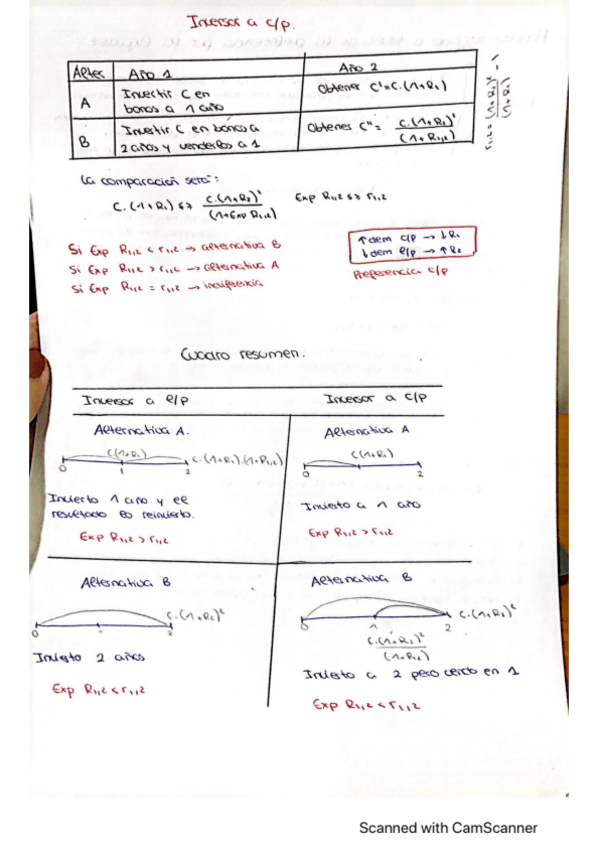 Inversor a c/p.
Alter Año 1 Año 2
A Invertir C en bonos a 1 año Obtener C'=C.(1+R₁)
B Invertir C en bonos a 2 años y venderlos a 1 Obtener C''= C.(1+R₂)² / (1+R₁,₂)
r₁,₂ = (1+R₂)² / (1+R₁) - 1
La comparación será:
C.(1+R₁) ↔ C.(1+R₂)² / (1+Exp R₁,₂) Exp R₁,₂ ↔ r₁,₂
Si Exp R₁,₂ < r₁,₂ → alternativa B
Si Exp R₁,₂ > r₁,₂ → alternativa A
Si Exp R₁,₂ = r₁,₂ → indiferencia
↑dem c/p → ↓R₁
↓dem l/p → ↑R₂
Preferencia c/p
Cuadro resumen.
Inversor a l/p Inversor a c/p
Alternativa A.
C(1+R₁)
C.(1+R₁).(1+R₁,₂)
0 1 2
Invierto 1 año y el
resultado lo reinvierto.
Exp R₁,₂ > r₁,₂
Alternativa A
C(1+R₁)
0 1 2
Invierto a 1 año
Exp R₁,₂ > r₁,₂
Alternativa B
C.(1+R₂)²
0 1 2
Invierto 2 años
Exp R₁,₂ < r₁,₂
Alternativa B
C.(1+R₂)²
0 1 2
C.(1+R₂)² / (1+R₁,₂)
Invierto a 2 pero vendo en 1
Exp R₁,₂ < r₁,₂
Scanned with CamScanner